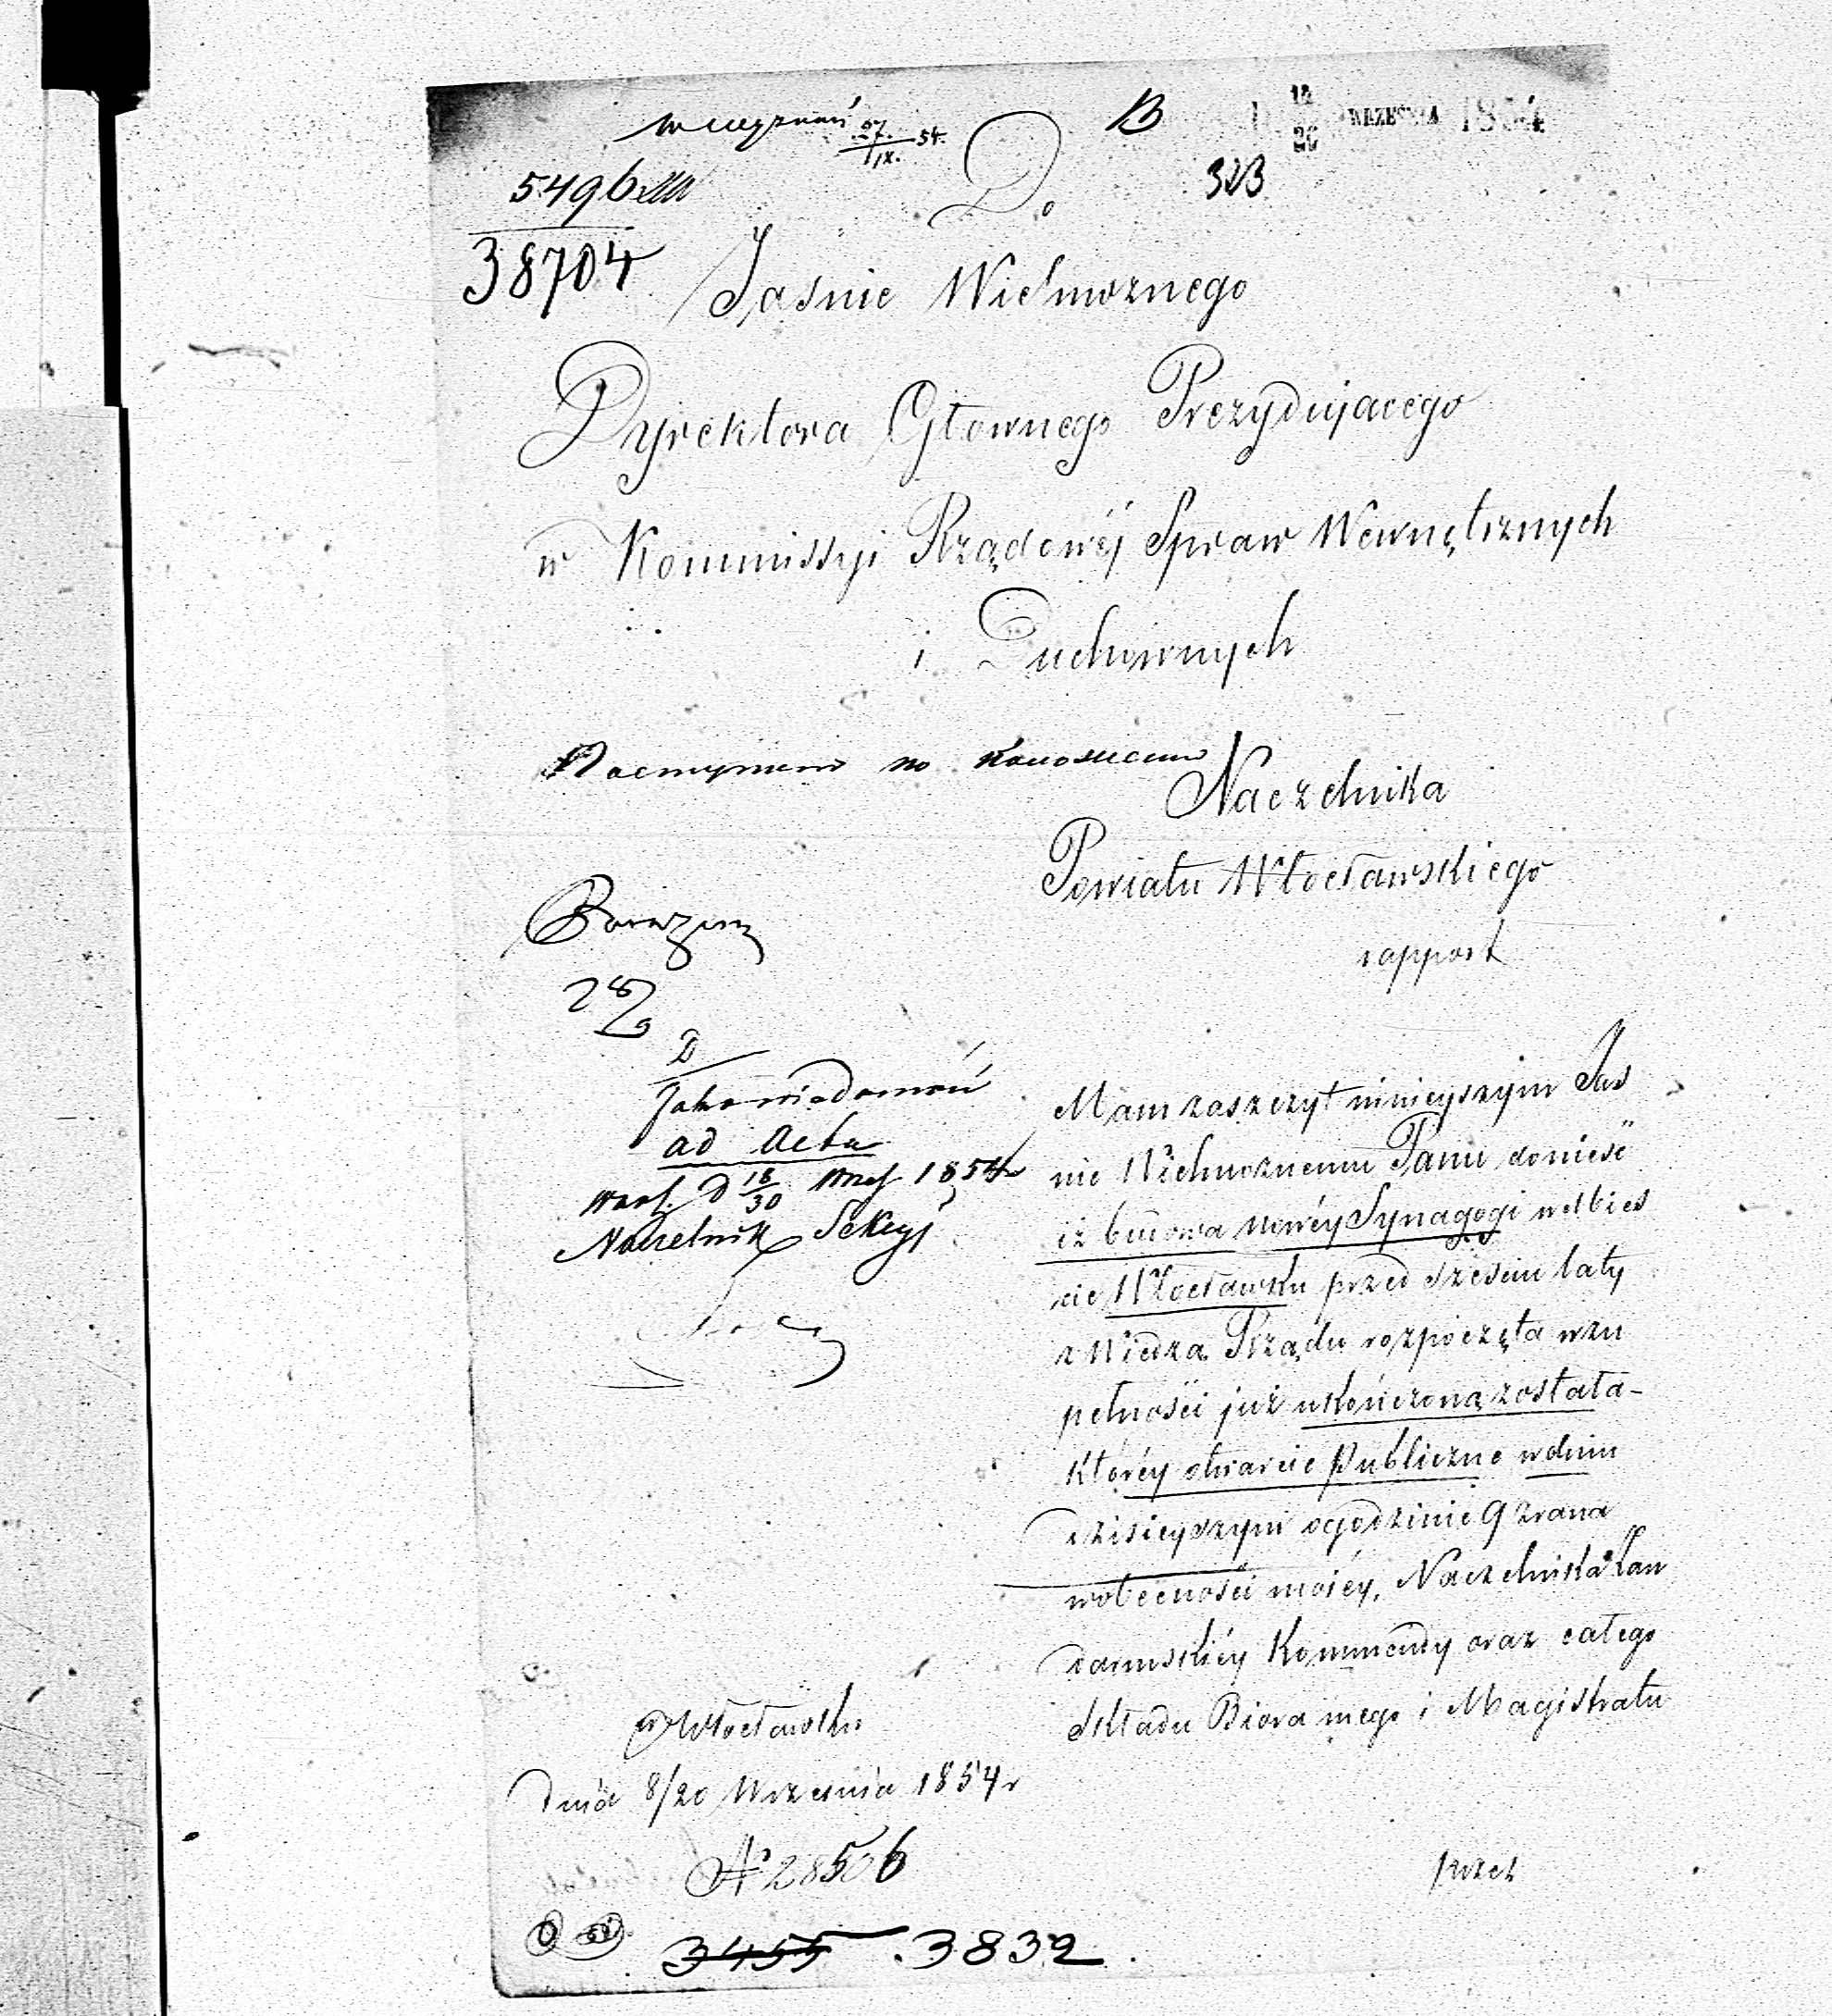 27./IX. 54.
B
14/26 WRZEŚNIA 1854
323
5496
38704
Do
Jaśnie Wielmożnego
Dyrektora Głownego Prezydujacego
w Kommissyi Rządowéj Spraw Wewnętrznych
i Duchownych
Naczelnika
Powiatu Włocławskiego
rapport
28/9
D
Jako wiadomość
ad Acta
Wars. D 18/30 Wrześ 1854r
Naczelnik Sekcyi
Mam zaszczyt ninieyszym Jaś
nie Wielmożnemu Panu donieść
iż budowa nowéy Synagogi w obies
cie Włocławku przed sześciu laty
z Wiedzą Rządu rozpoczęta w zu
pełności już ukończoną została –
któréy otwarcie publiczne w dniu
dzisieyszym o godzinie 9 z rana
w obecności moiéy, Naczelnika Żan
darmskiéy Kommendy oraz całego
Składu Biora mego i Magistratu
w Włocławku
dnia 8/20 Września 1854 r
N 28506
przez
3455 . 3832